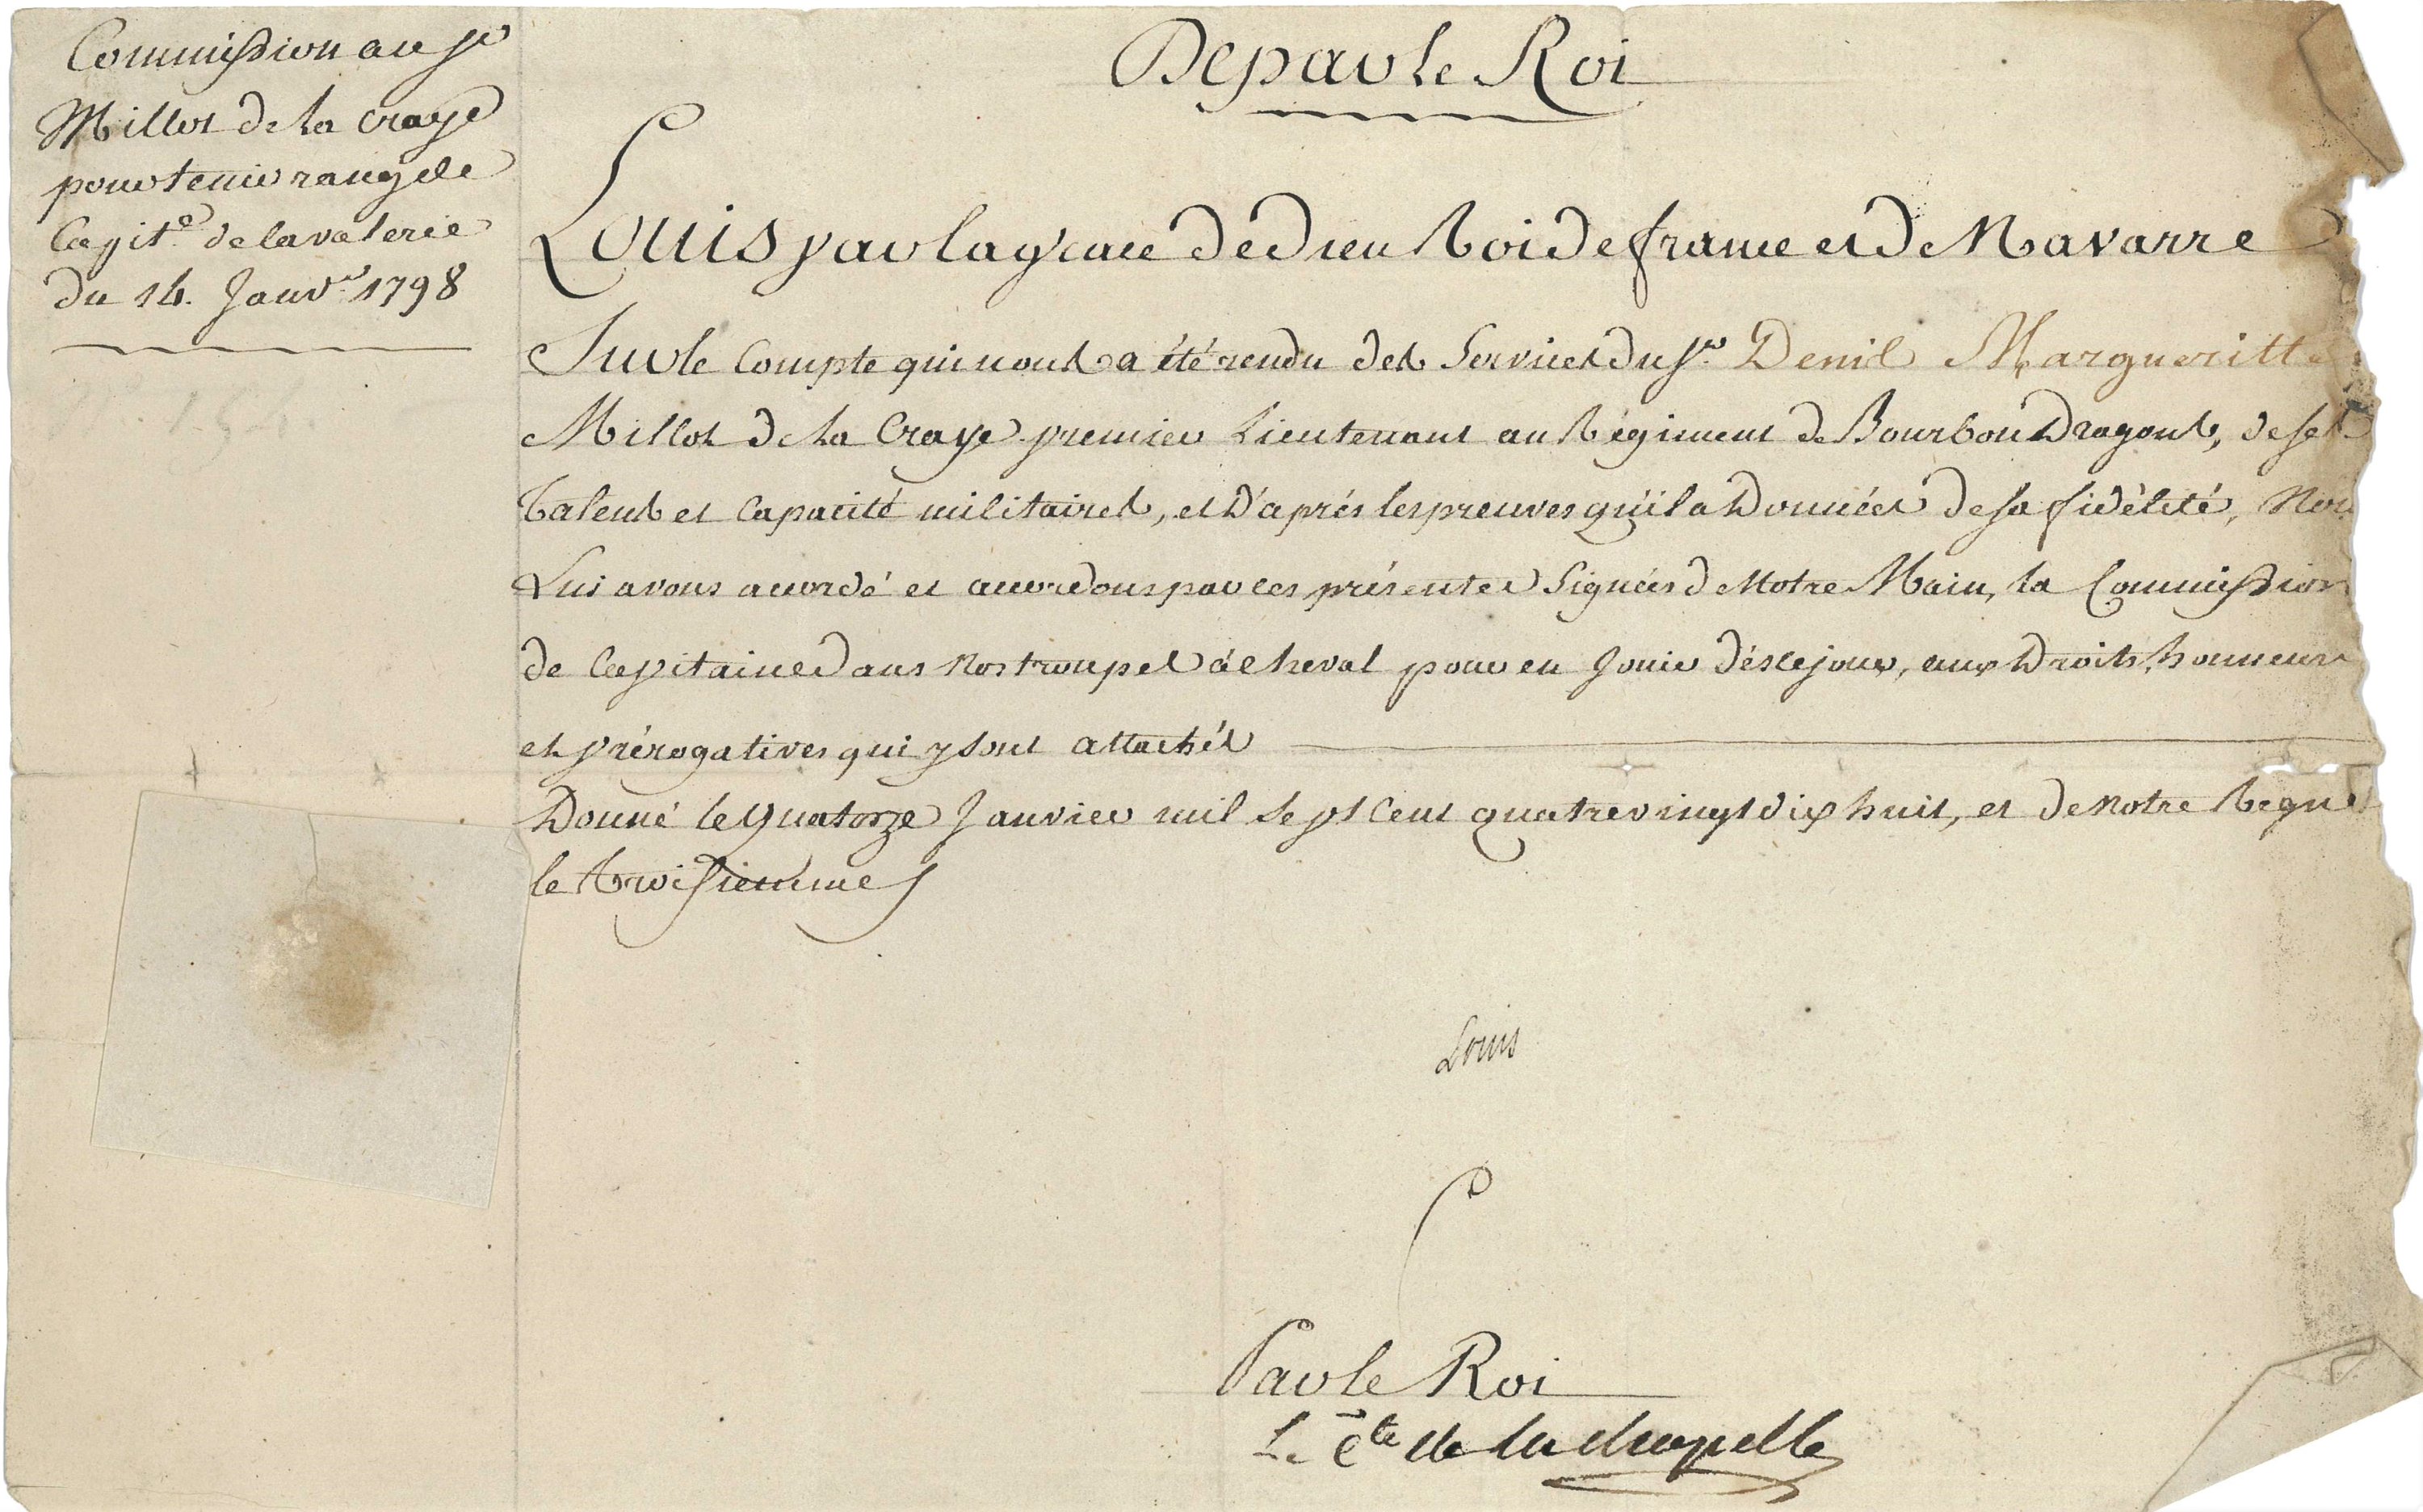 Commission au Sr
Millot de la Craye
pour tenir rang de
Capite. de Cavalerie
du 14. Janvr. 1798
De par le Roi
Louis par la grace de Dieu Roi de france et de Navarre
Sur le Compte qui nous a été rendu des Services du Sr. Denis Margueritte
Millot de la Craye premier Lieutenant au Régiment de Bourbon Dragons, de ses
Talens et Capacité militaires, et D'aprés les preuves qu'il a Données de sa fidélité, Nou
Lui avons accordé et accordons par ces présentes Signées de Notre Main, la Commission
de Capitaine dans Nos troupes à cheval pour en Jouir dès ce jour, aux Droits, honneurs
et prérogatives qui y sont attachés
Donné le Quatorze Janvier mil Sept Cent quatre vingt dix huit, et de Notre Regne
le troisiemme
Louis
Par le Roi
Le Cte de la chapelle